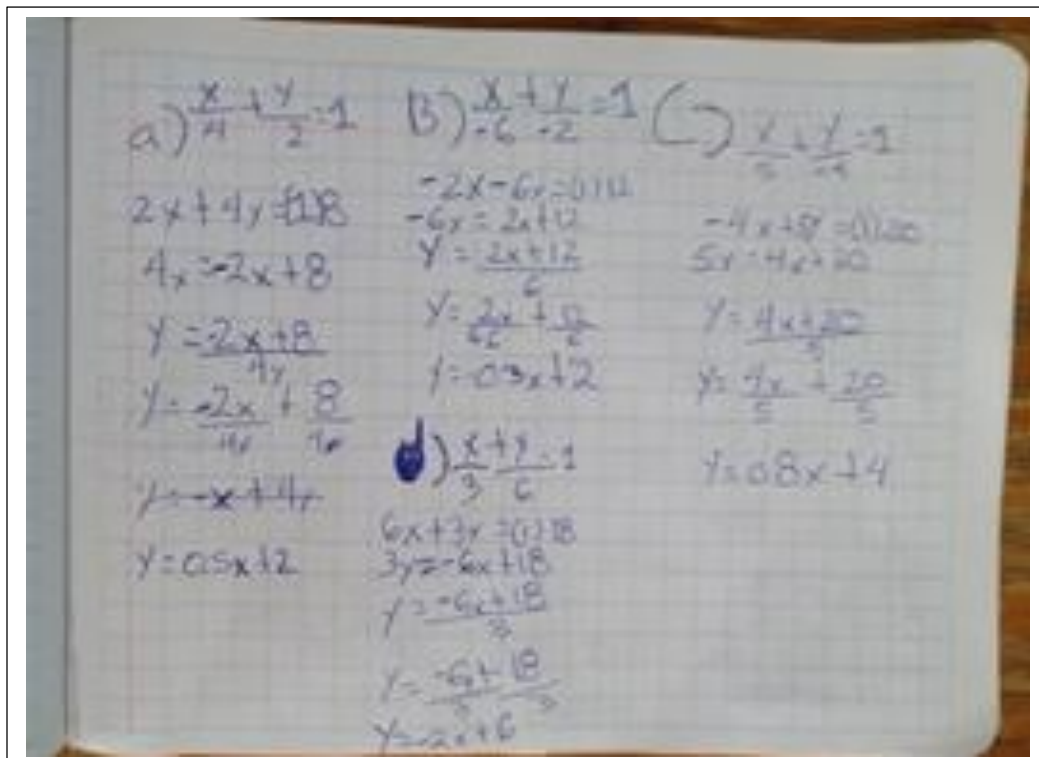 a) x/4 + y/2 = 1
2x + 4y = (1)8
4y = -2x + 8
y = -2x + 8 / 4y
y = -2x/4 + 8/4
y = -x + 4y
y = 0.5x + 2
B) x/-6 + y/-2 = 1
-2x - 6y = (1)12
-6y = 2x + 12
y = 2x + 12 / 6
y = 2x/6 + 12/6
y = 0.3x + 2
d) x/3 + y/6 = 1
6x + 3y = (1)18
3y = -6x + 18
y = -6x + 18 / 3
y = -6x/3 + 18/3
y = -2x + 6
C) x/5 + y/-4 = 1
-4x + 5y = (1)20
5y = 4x + 20
y = 4x + 20 / 5
y = 4x/5 + 20/5
y = 0.8x + 4